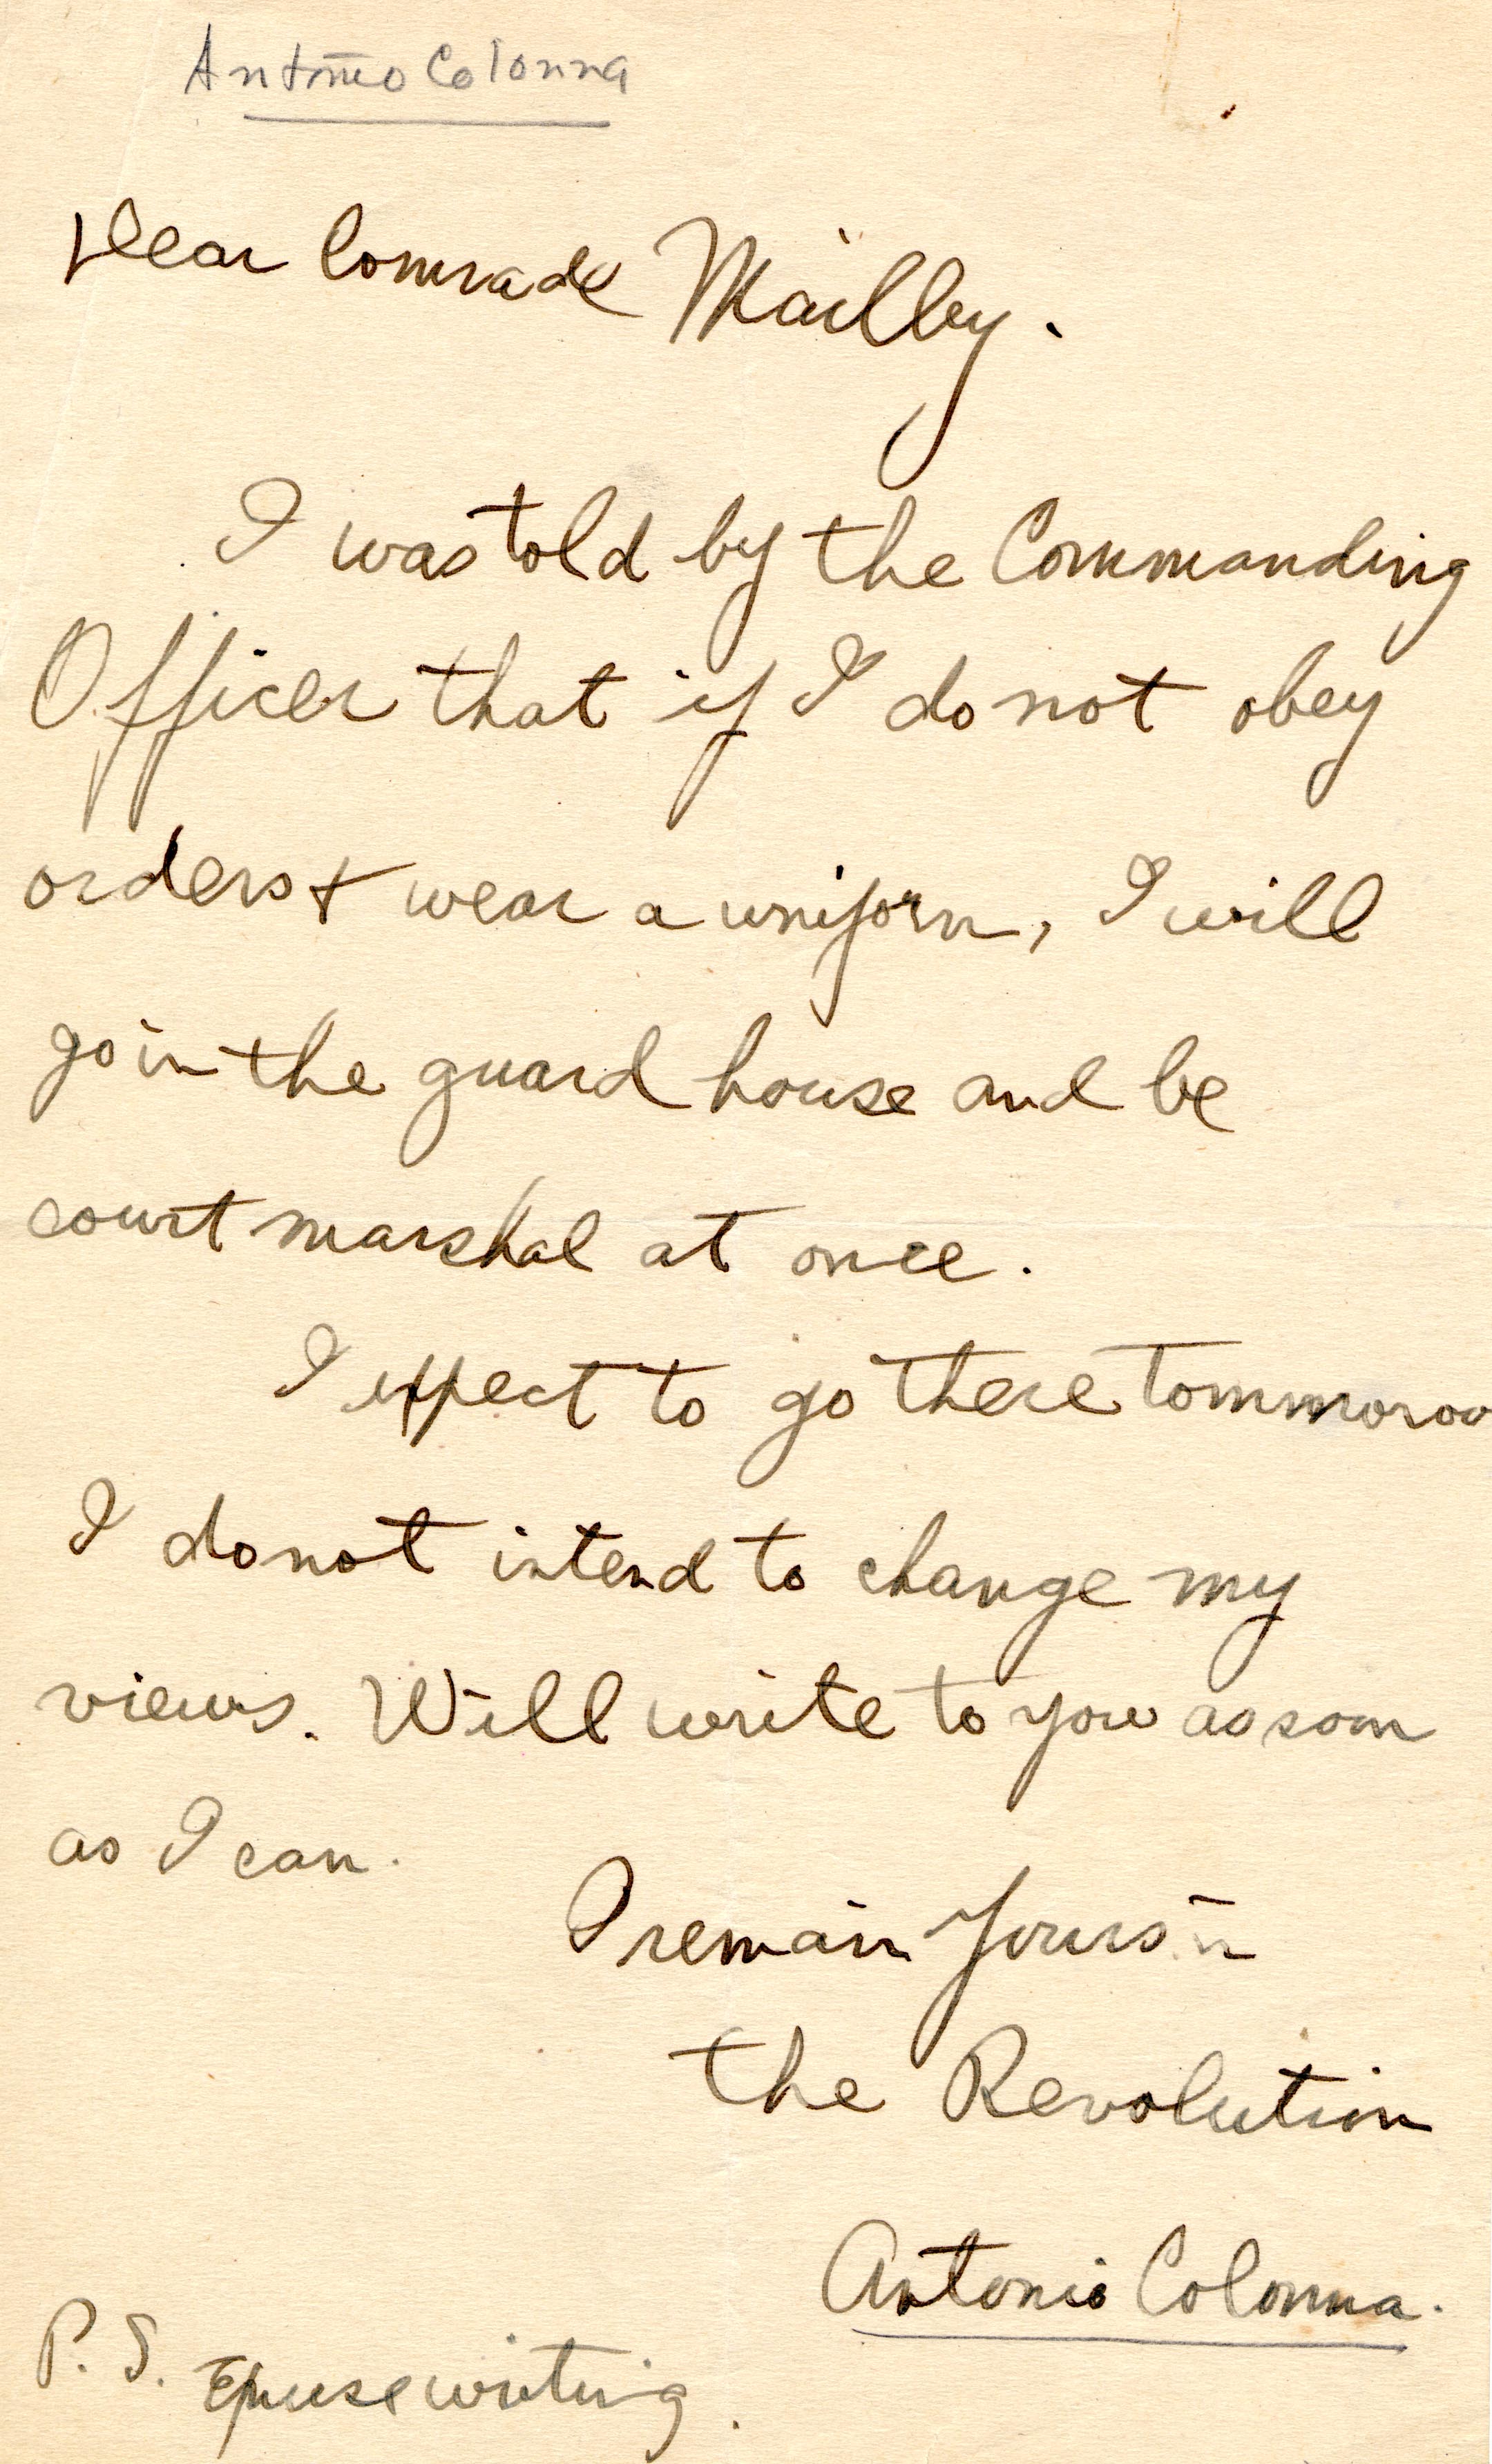 Antonio Colonna
Dear Comrade Mailly.
I was told by the Commanding
Officer that if I do not obey
orders & wear a uniform, I will
go in the guard house and be
court marshal at once.
I expect to go there tommorow
I do not intend to change my
views. Will write to you as soon
as I can.
I remain Yours in
the Revolution
Antonio Colonna.
P. S. Excuse writing.